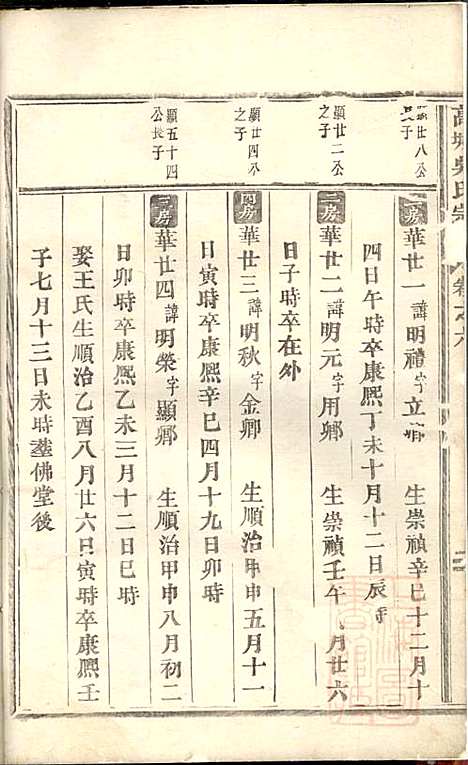 吳氏宗
卷之六
廿八公
長子
二房
華廿一諱明禮字立卿 生崇禎辛巳十二月十
四日午時卒康熙丁未十月十二日辰時
顯廿二公
之子
二房
華廿二諱明元字用卿 生崇禎壬午 月廿六
日子時卒在外
顯廿四公
之子
四房
華廿三諱明秋字金卿 生順治甲申五月十一
日寅時卒康熙辛巳四月十九日卯時
顯五十四
公長子
二房
華廿四諱明榮字顯卿 生順治甲申八月初二
日卯時卒康熙乙未三月十二日巳時
娶王氏生順治乙酉八月廿六日寅時卒康熙壬
子七月十三日未時塟佛堂後